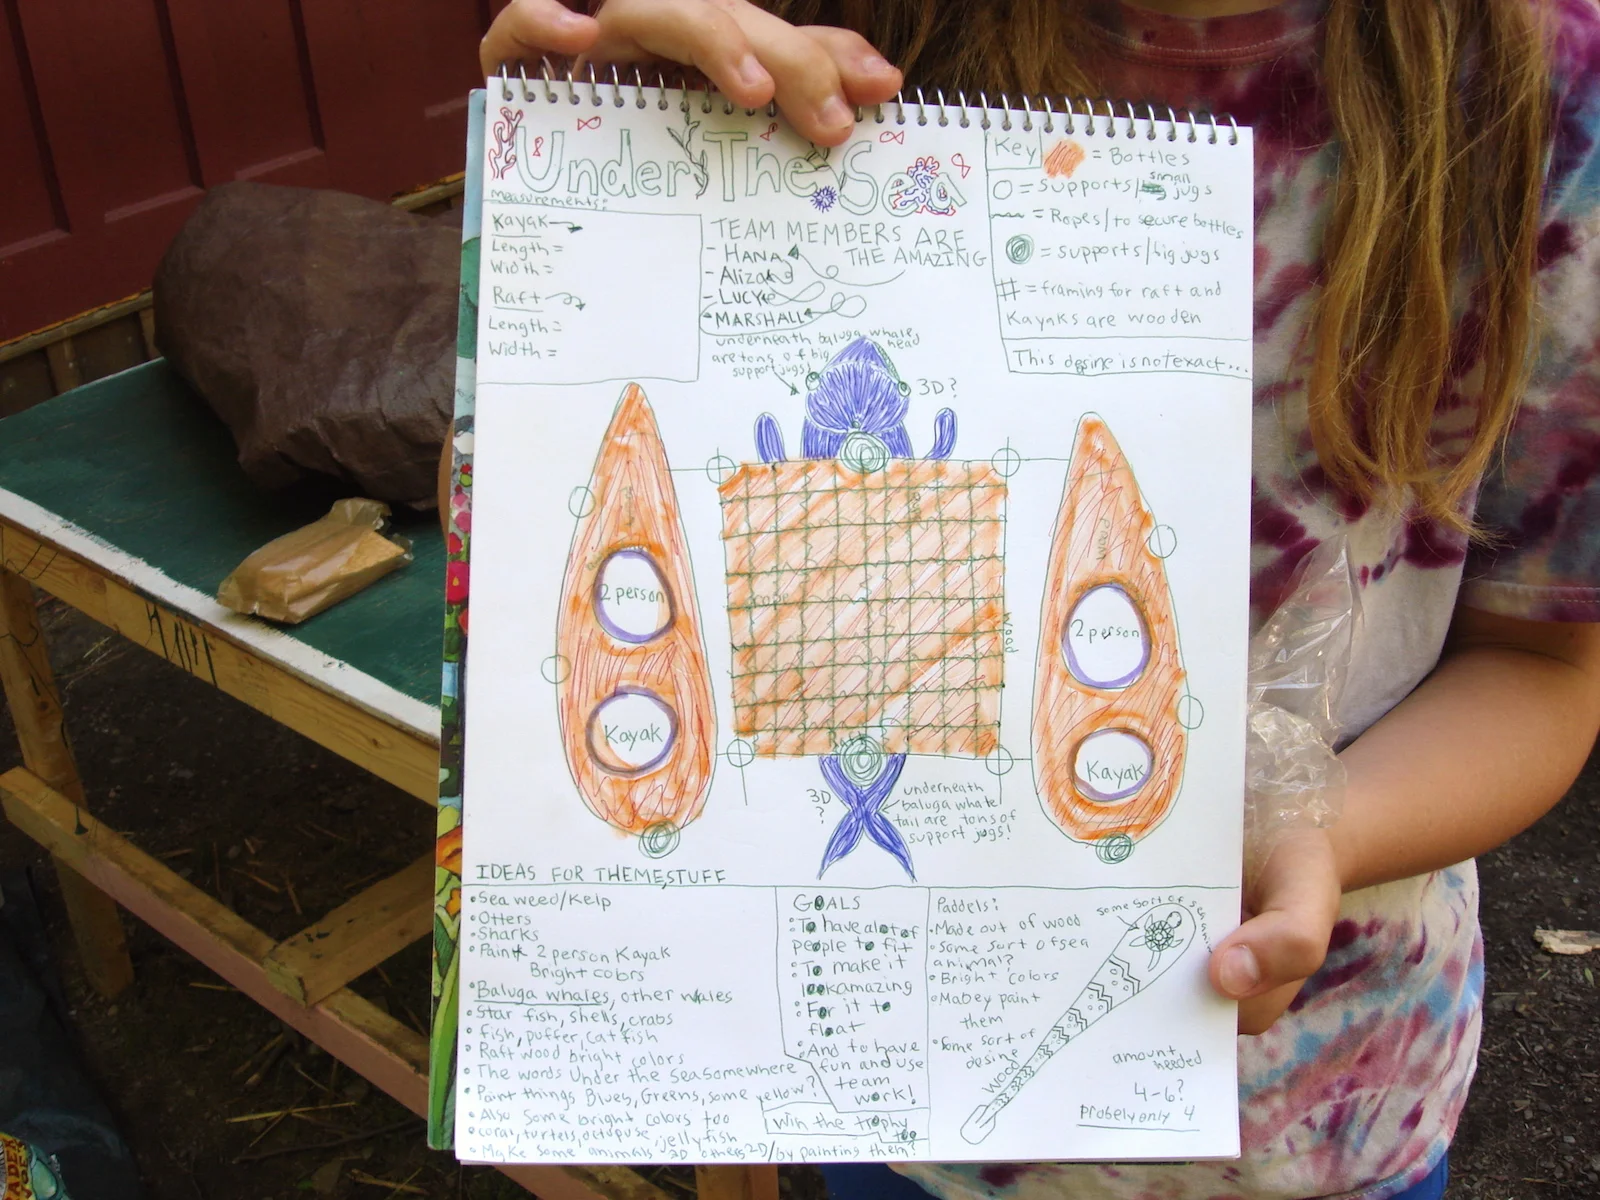 Under The Sea
measurements:
Kayak
Length =
Width =
Raft
Length =
Width =
TEAM MEMBERS ARE
THE AMAZING
- HANA
- Aliza
- LUCY
- MARSHALL
Key
= Bottles
= supports/small jugs
= Ropes/to secure bottles
= supports/big jugs
# = framing for raft and
Kayaks are wooden
This desine is not exact...
underneath baluga whale
head
are tons of big
support jugs!
3D?
2 person
Kayak
rope
wood
2 person
Kayak
3D
?
underneath
baluga whale
tail are tons of
support jugs!
IDEAS FOR THEME STUFF
• Sea weed/Kelp
• Otters
• Sharks
• Paint 2 person Kayak
Bright colors
• Baluga whales, other wales
• Star fish, shells, crabs
• fish, puffer, cat fish
• Raft wood bright colors
• The words Under the Sea somewhere
• Paint things Blues, Greens, some yellow?
• Also some bright colors too
• coral, turtels, octopuse, jellyfish
• Make some animals 3D others 2D/by painting them?
GOALS
• To have alot of
people to fit
• To make it
look amazing
• For it to
float
• And to have
fun and use
team
work!
Win the trophy
too
Paddels:
• Made out of wood
• some sort of sea
animal?
• Bright colors
• Mabey paint
them
• Some sort of
desine
some sort of sea
WOOD
amount
needed
4-6?
Probely only 4